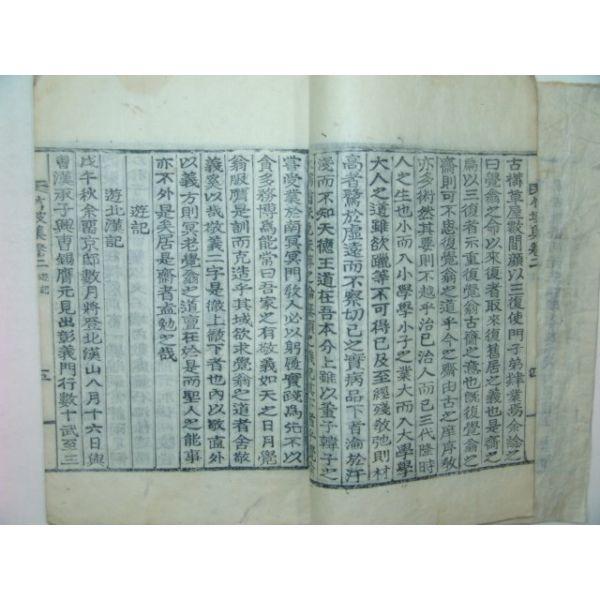 古構草屋數間顏以三復使門子弟肄業焉余諗之
曰覺翁之命以來復者取來復舊居之義也是齋之
爲以三復者示重復覺翁古齋之意也旣復覺翁之
齋則可不思復覺翁之道乎今之齋由古之庠序敎
亦多術然其要則不越乎治已治人而已三代隆時
人之生也小而入小學學小子之業大而入大學學
大人之道雖欲躐等不可得已及至經殘敎弛則材
高者騖於虛遠而不察切已之實病品下者淪於汙
淺而不知天德王道在吾本分上雖以董子韓子之
嘗受業於南冥冥門敎人必以躬履實踐爲先不以
貪多務博爲能嘗曰吾家之有敬義如天之日月覺
翁服膺是訓而克造乎其域欲求覺翁之道者舍敬
義奚以哉敬義二字是徹上徹下者也內以敬直外
以義方則冥老覺翁之道亶在於是而聖人之能事
亦不外是矣居是齋者盍勉之哉
遊記
遊北漢記
戊午秋余留京邸數月將登北漢山八月十六日與
曺漢承子興曺錫膺元見出彰義門行數十武至三